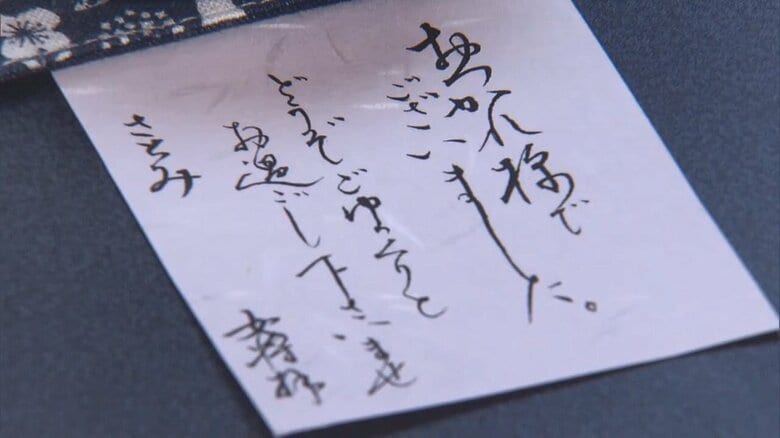 おつかれ様で
ございました。
どうぞごゆっくりと
お過ごし下さいませ
さとみ 女将拝